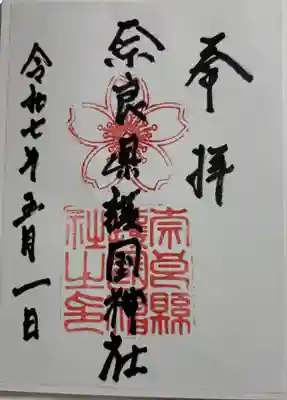 奉拝
奈良県護国神社
令和七年五月一日
奈良縣護國神社之印